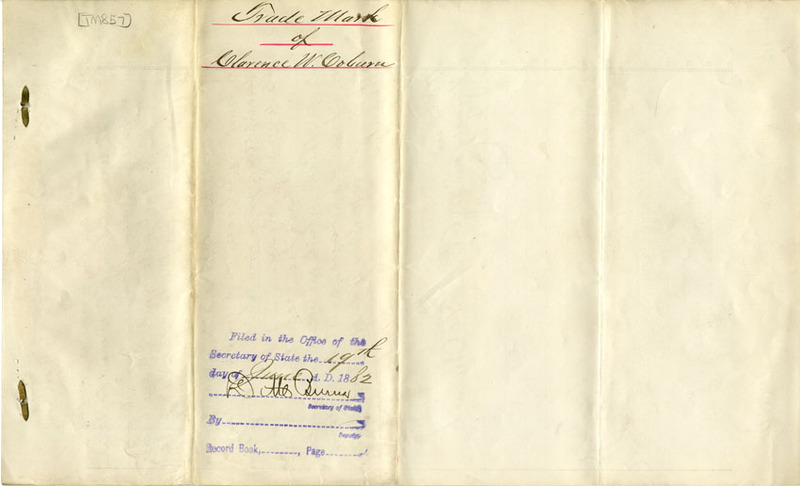 [TM857]
Trade Mark
of
Clarence W. Coburn
Filed in the Office of the
Secretary of State the 19th
day of June A. D. 1882
Burns
Secretary of State
By
Deputy
Record Book, , Page